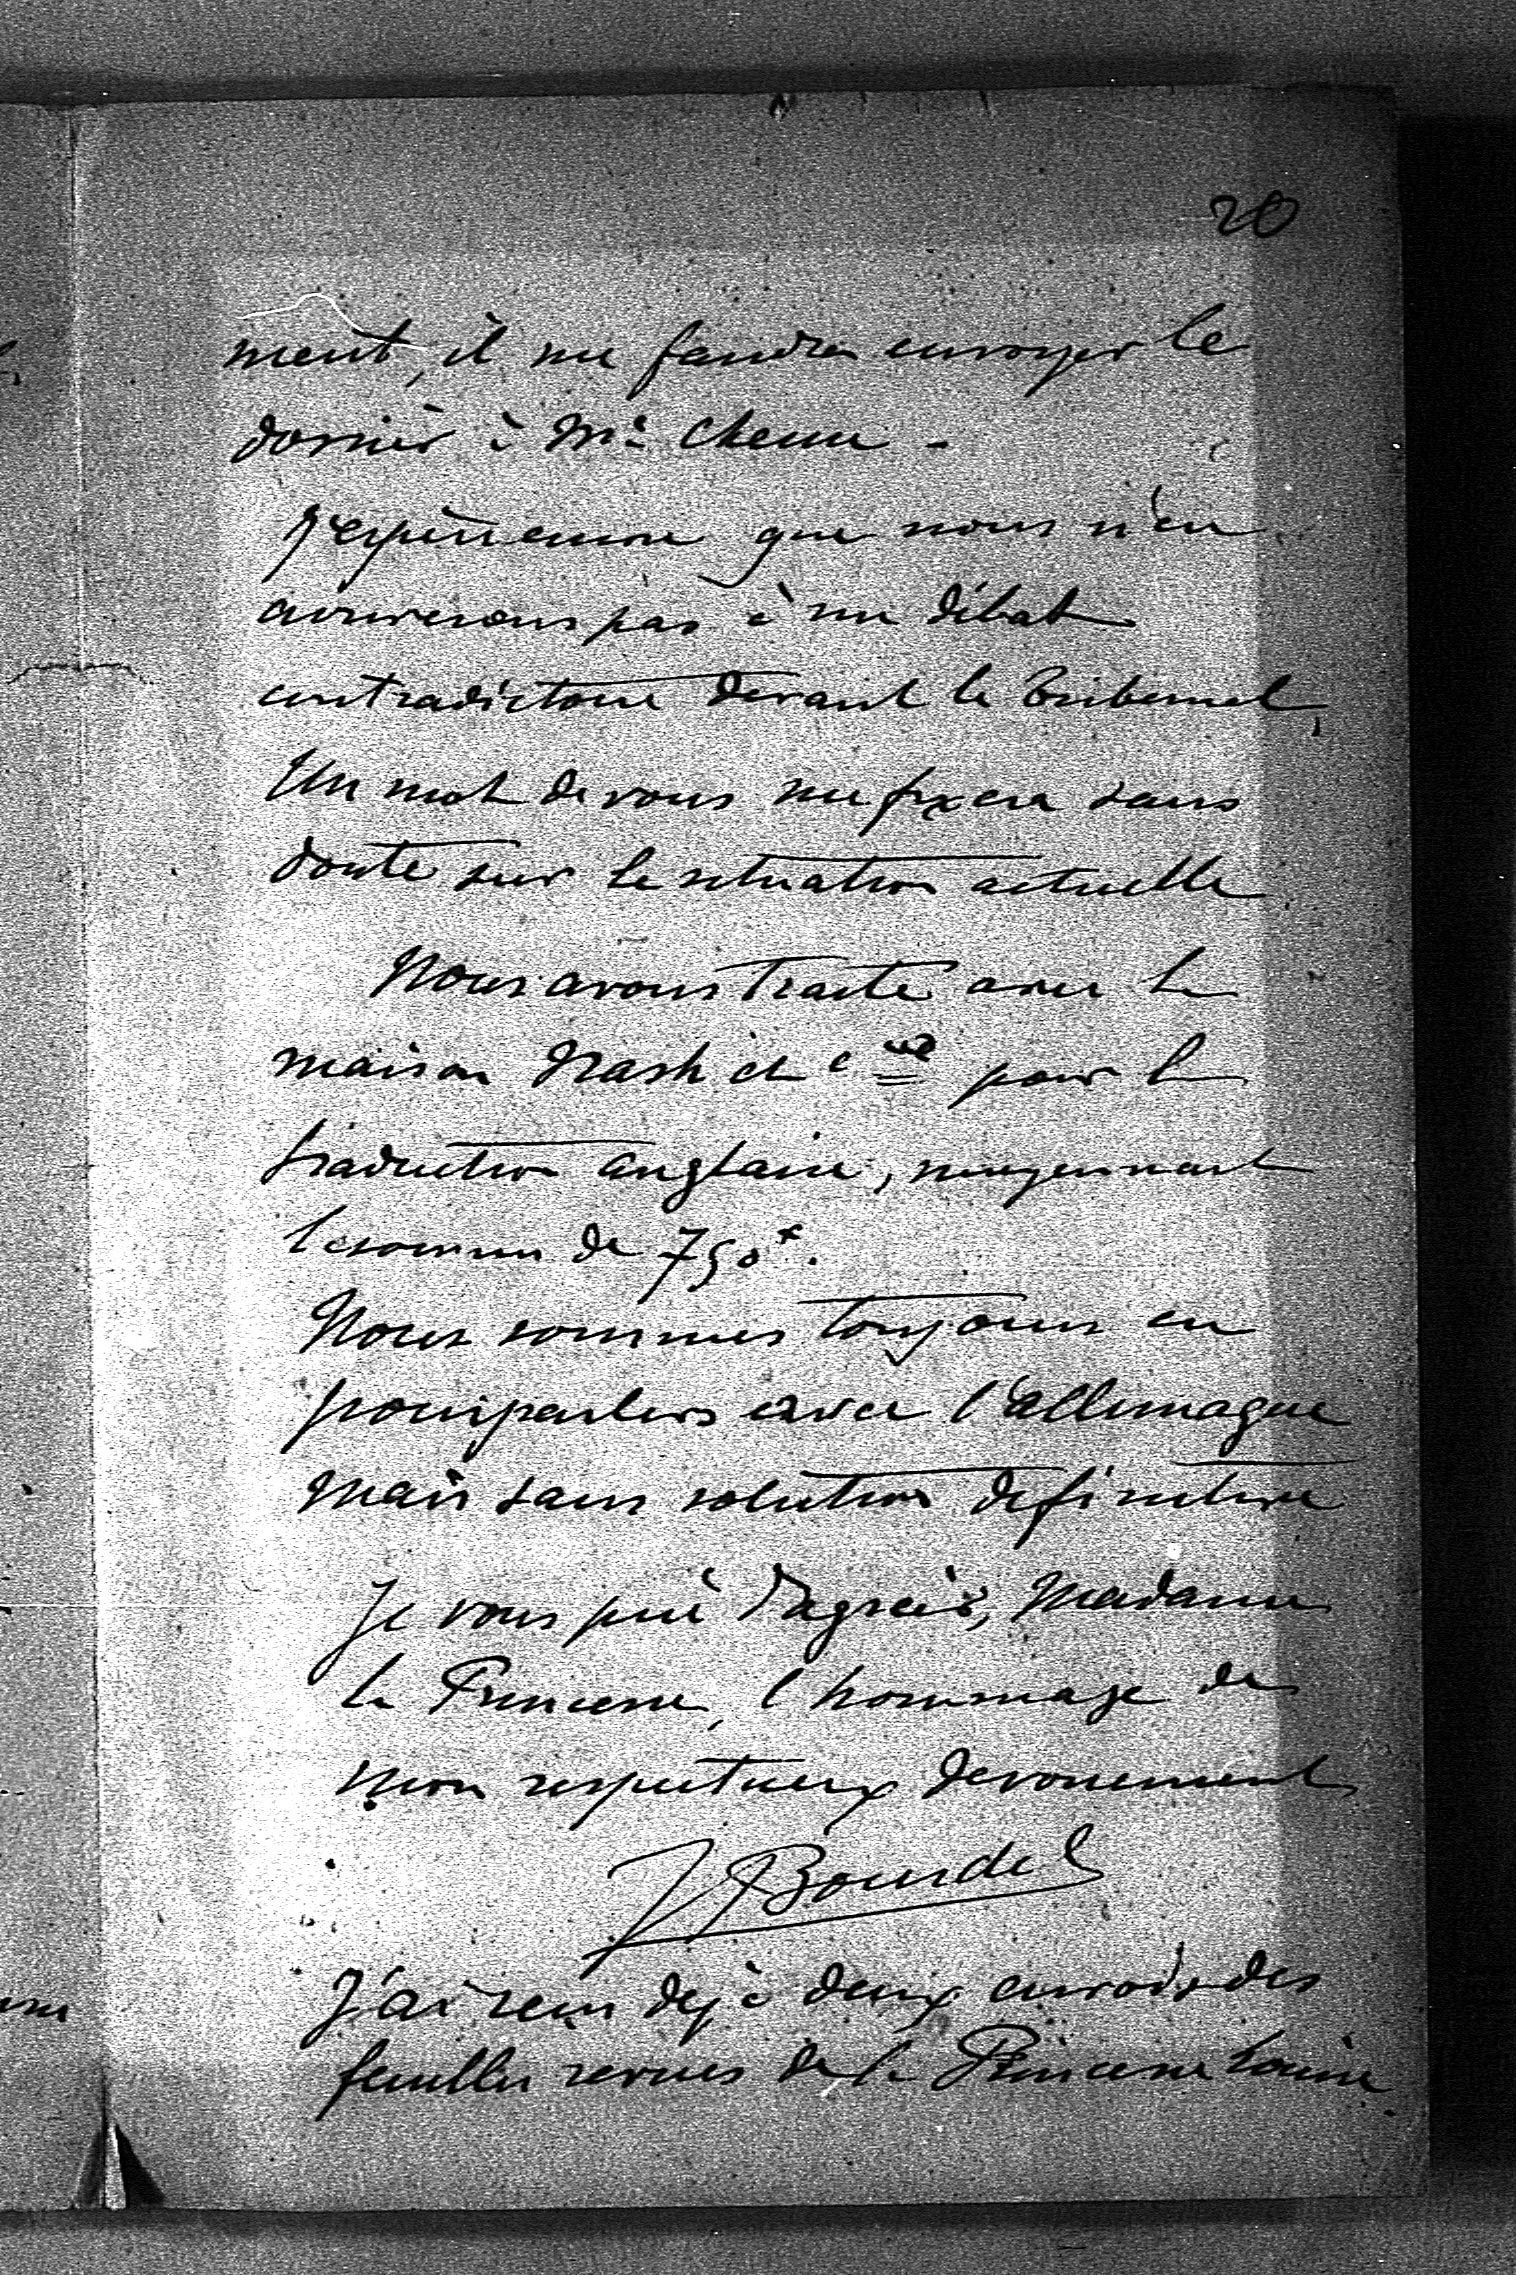 20
ment, il me faudra envoyer le
dossier à Me Chenu -
J'espère encore que nous n'en
arriverons pas à un débat
contradictoire devant le Tribunal,
Un mot de vous me fixera sans
doute sur la situation actuelle
Nous avons traité avec la
maison Nash et Cie pour la
traduction anglaise, moyennant
la somme de 750f.
Nous sommes toujours en
pourparlers avec l'allemagne
mais sans solution définitive
Je vous prie d'agréer, Madame
la Princesse, l'hommage de
mon respectueux dévouement
J Bourdel
J'ai reçu déjà deux envois des
feuilles revues de la Princesse Louise